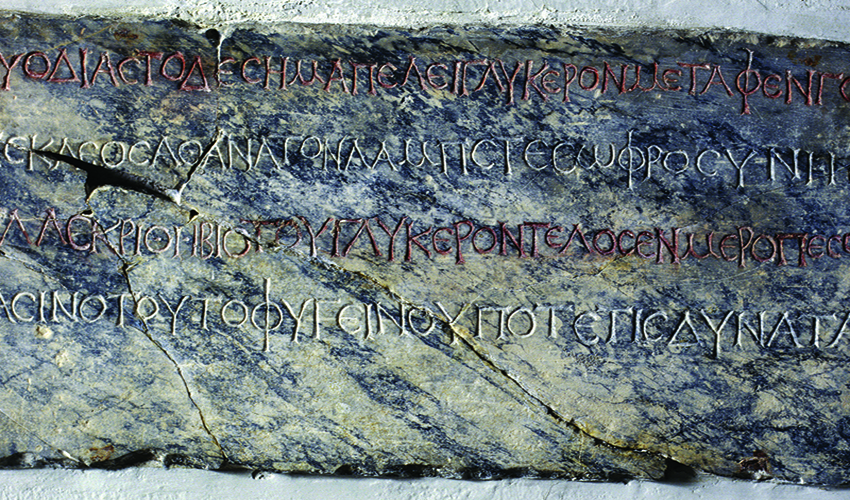 ΥΟΔΙΑϹΤΟΔΕϹΗΜΑΠΕΛΕΙΓΛΥΚΕΡΟΝΜΕΤΑΦΕΝΓΟ
ϹΕΚΛΕΟϹΑΘΑΝΑΤΟΝΛΑΜΠΙϹΤΕϹΩΦΡΟϹΥΝΗ
ΑΛΛΕΚΡΙΘΗΒΙΟΤΟΥΓΛΥΚΕΡΟΝΤΕΛΟϹΕΝΜΕΡΟΠΕϹϹ
ΑϹΙΝΟΤΟΥΤΟΦΥΓΕΙΝΟΥΠΟΤΕΠΙϹΔΥΝΑΤΑ